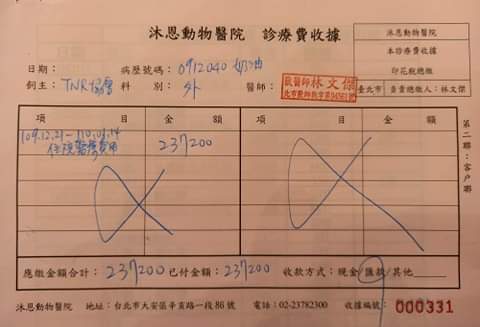 沐恩動物醫院 診療費收據
沐恩動物醫院
本診療費收據
印花稅總繳
臺北市 負責總繳人:林文傑
日期: 病歷號碼:0912040 奶油
飼主:TNR協會 科別:外 醫師:獸醫師林文傑
項目 金額 項目 金額
109.12.21-110.03.14 237200
住院醫療費用
第二聯:客戶聯
應繳金額合計:237200 已付金額:237200 收款方式:現金/匯款/其他
沐恩動物醫院 地址:台北市大安區辛亥路一段86號 電話:02-23782300 收據編號: 000331